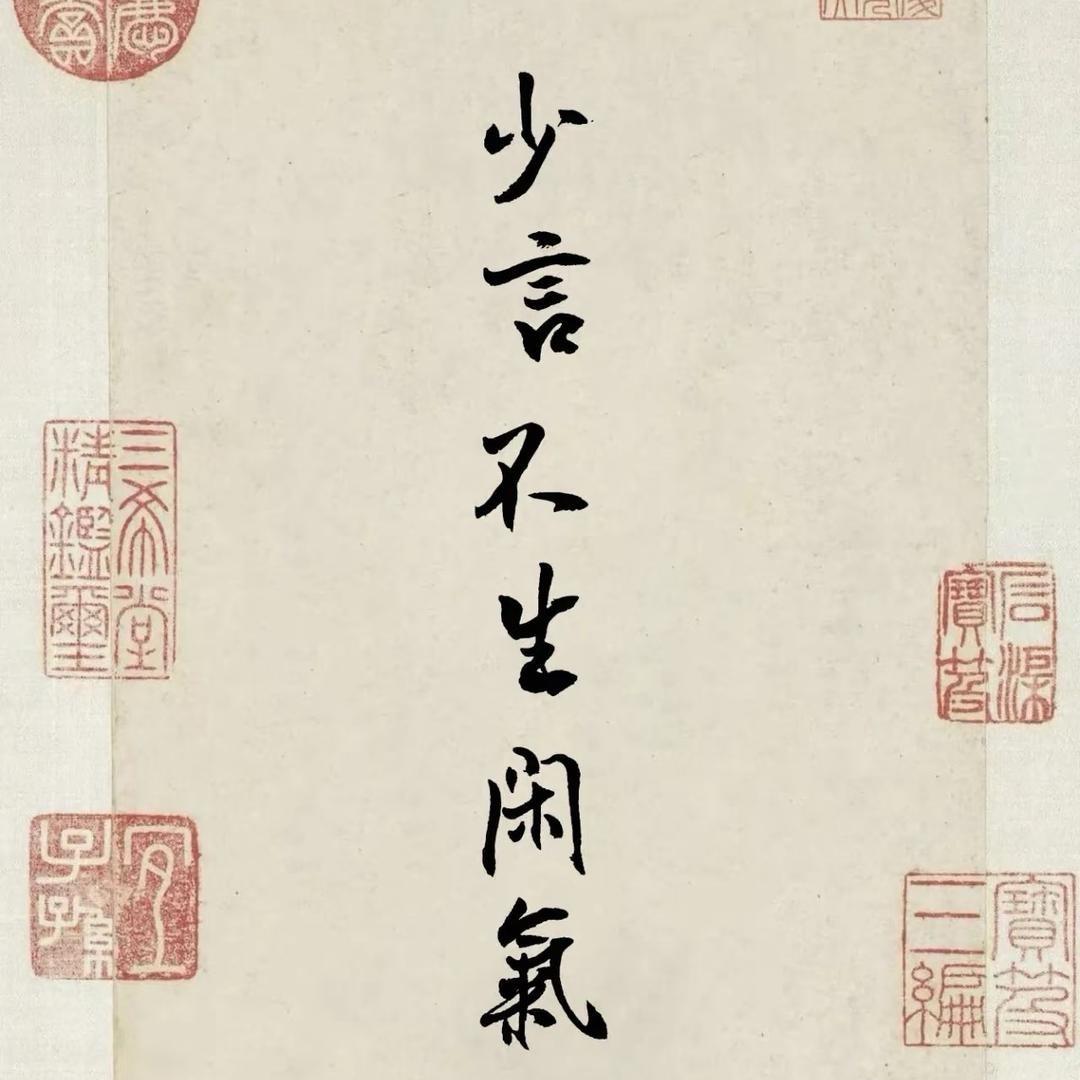 少言不生闲氣
三希堂精鑑璽
宜子孫
石渠寶笈
寶笈三編